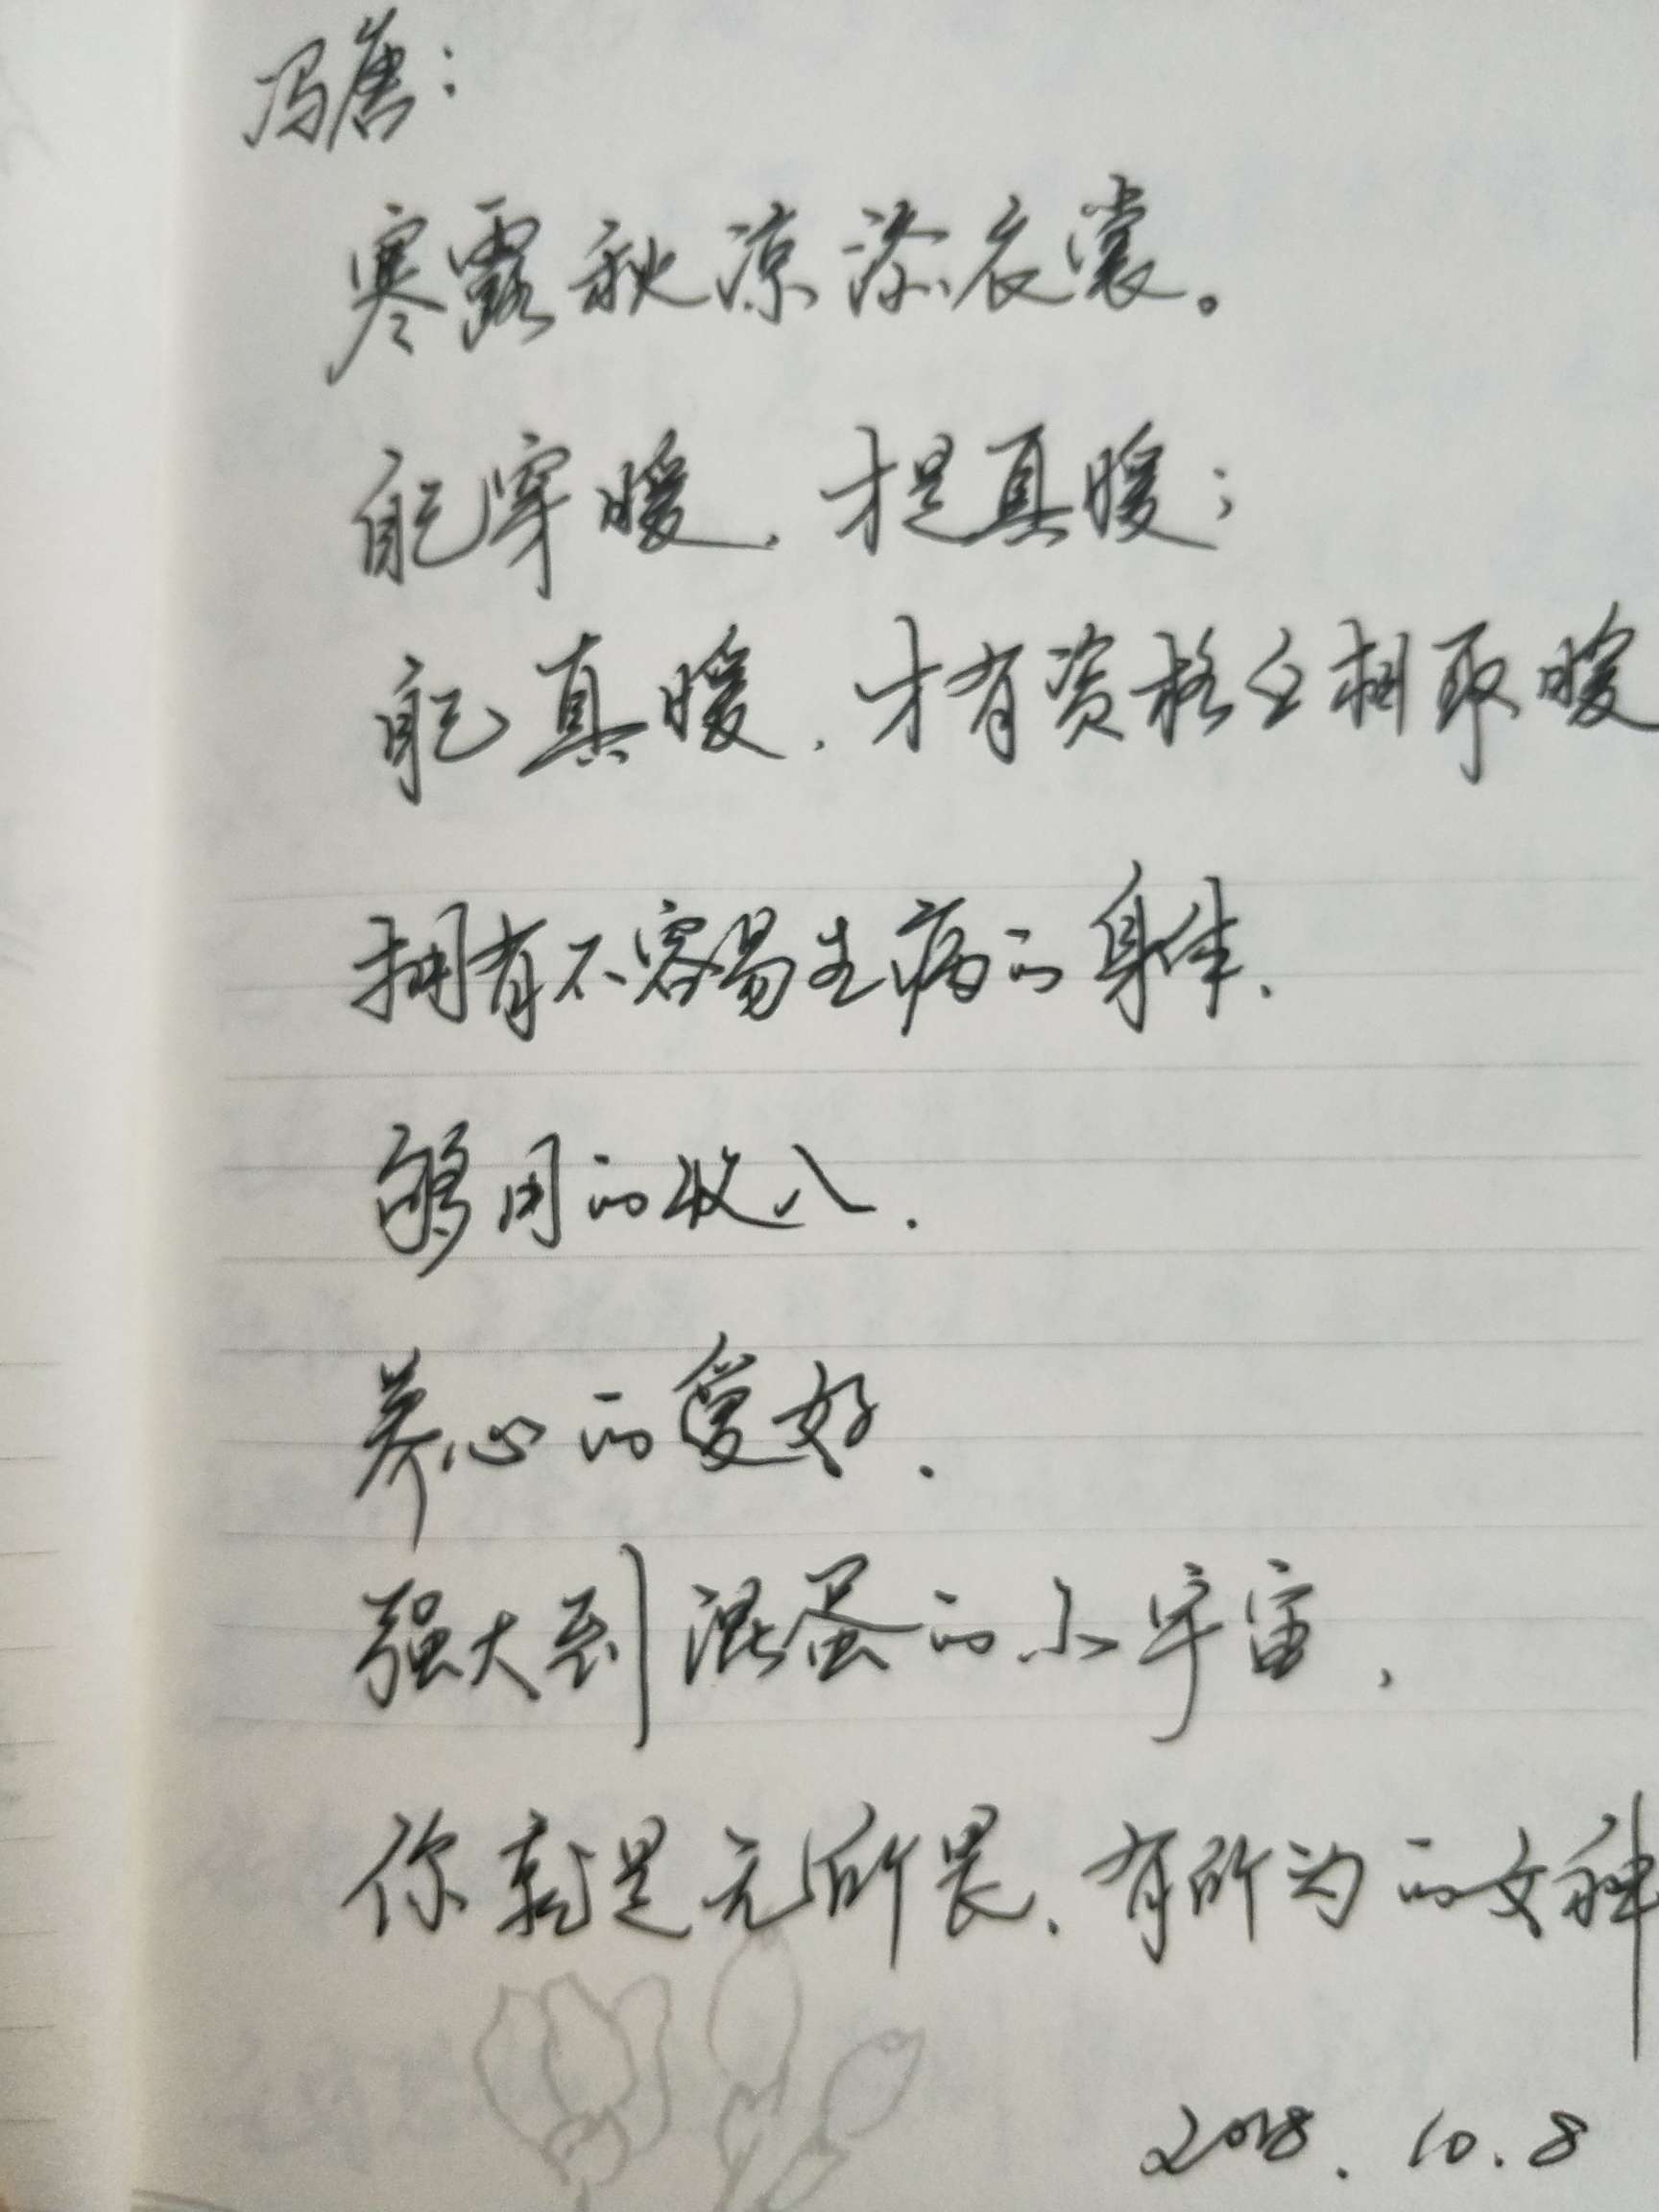 冯唐：
寒露秋凉添衣裳。
自己穿暖，才是真暖；
自己真暖，才有资格互相取暖
拥有不容易生病的身体，
够用的收入，
养心的爱好，
强大到混蛋的小宇宙，
你就是无所畏，有所为的女神
2018.10.8